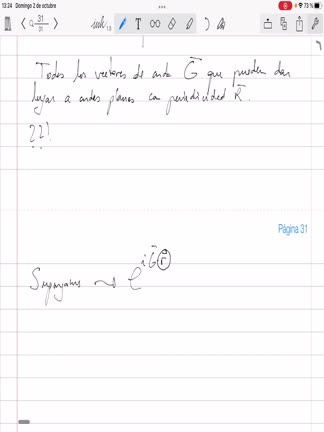 13:24 Domingo 2 de octubre 73 %
31/31
Todos los vectores de onda G⃗ que pueden dar
lugar a ondas planas con periodicidad R⃗.
??!
Página 31
Supongamos ⇝ e^{i G⃗ r⃗}